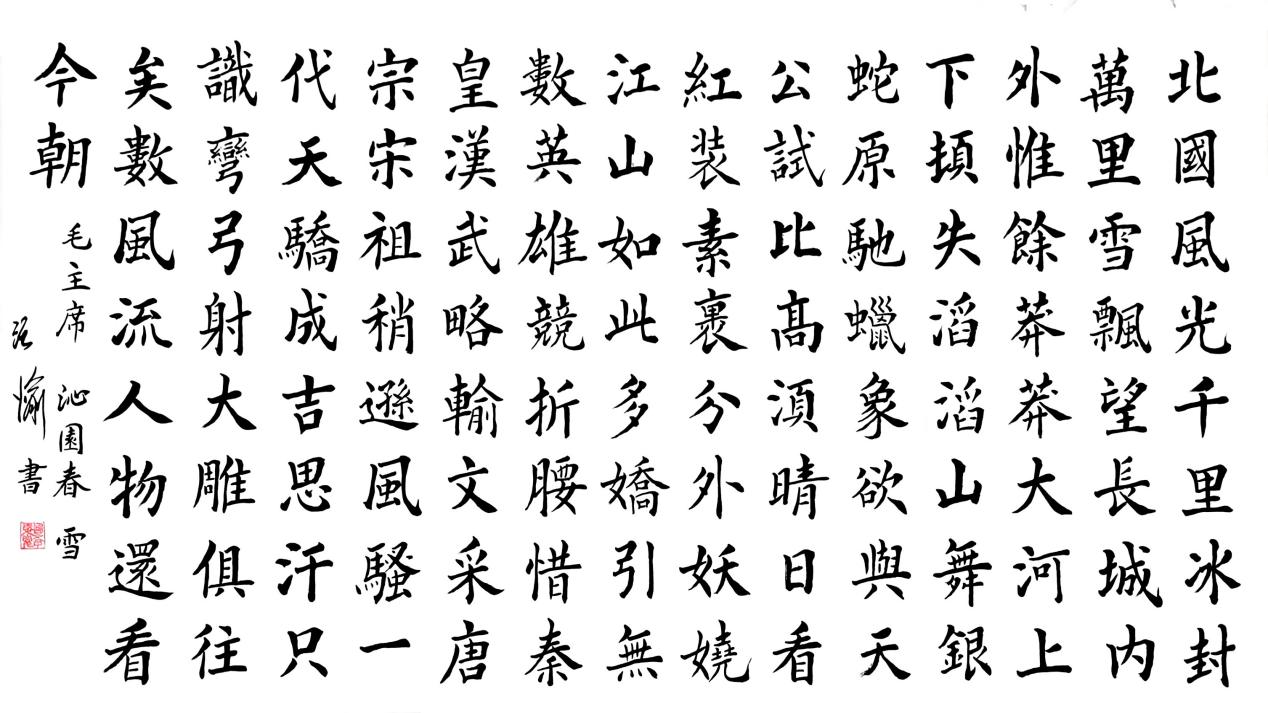 北國風光千里冰封
萬里雪飄望長城内
外惟餘莽莽大河上
下頓失滔滔山舞銀
蛇原馳蠟象欲與天
公試比髙湏晴日看
紅装素裹分外妖嬈
江山如此多嬌引無
數英雄競折腰惜秦
皇漢武略輸文采唐
宗宋祖稍遜風騷一
代天驕成吉思汗只
識彎弓射大雕俱往
矣數風流人物還看
今朝
毛主席 沁園春 雪
愉書